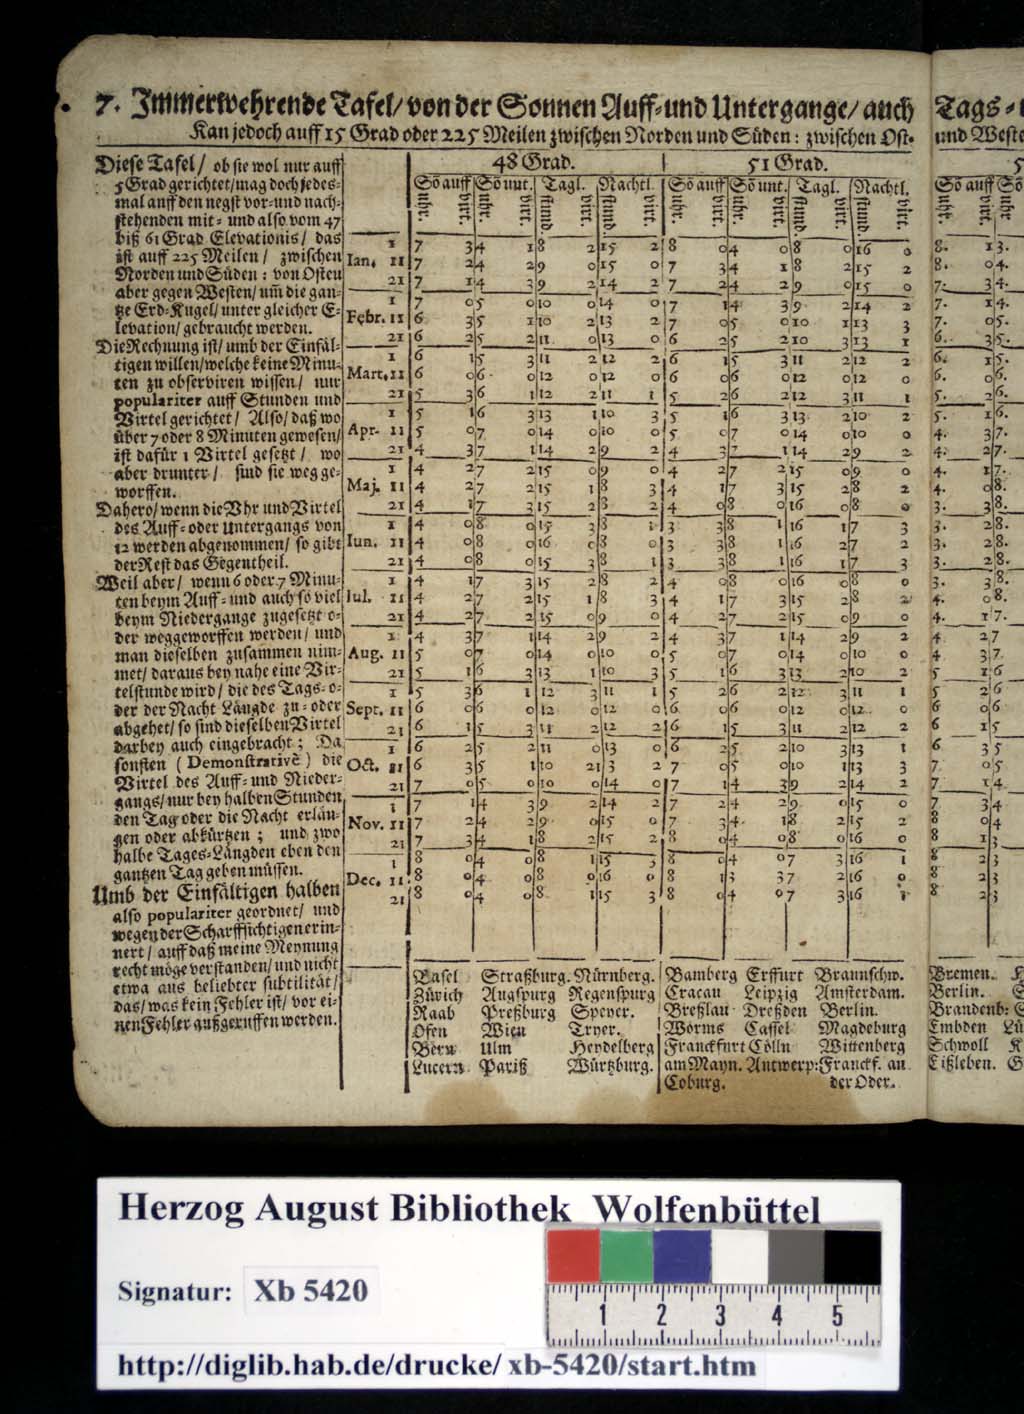 7. Immerwehrende Tafel/ von der Sonnen Auff- und Untergange/ auch
Kan jedoch auff 15 Grad oder 225 Meilen zwischen Norden und Süden: zwischen Ost-
Diese Tafel/ ob sie wol nur auff
5 Grad gerichtet/ mag doch jedes-
mal auff den negst vor- und nach-
stehenden mit- und also vom 47
biß 61 Grad Elevationis/ das
ist auff 225 Meilen/ zwischen
Norden und Süden: von Osten
aber gegen Westen/ um die gan-
tze Erd-Kugel/ unter gleicher E-
levation/ gebraucht werden.
Die Rechnung ist/ umb der Einfäl-
tigen willen/ welche keine Minu-
ten zu observiren wissen/ nur
populariter auff Stunden und
Virtel gerichtet/ Also/ daß wo
über 7 oder 8 Minuten gewesen/
ist dafür 1 Virtel gesetzt/ wo
aber drunter/ sind sie weg ge-
worffen.
Dahero/ wenn die Uhr und Virtel
des Auff- oder Untergangs von
12 werden abgenommen/ so gibt
der Rest das Gegentheil.
Weil aber/ wenn 6 oder 7 Minu-
ten beym Auff- und auch so viel
beym Niedergange zugesetzt o-
der weggeworffen werden/ und
man dieselben zusammen nim-
met/ daraus bey nahe eine Vir-
telstunde wird/ die des Tags- o-
der der Nacht Längde zu- oder
abgehet/ so sind dieselben Virtel
darbey auch eingebracht; Da
sonsten (Demonstrativè) die
Virtel des Auff- und Nieder-
gangs/ nur bey halben Stunden
den Tag oder die Nacht erlän-
gen oder abkürtzen; und zwo
halbe Tages-Längden eben den
gantzen Tag geben müssen.
Umb der Einfältigen halben
also populariter geordnet/ und
wegen der Scharffsichtigen erin-
nert/ auff daß meine Meynung
recht möge verstanden/ und nicht
etwa aus beliebter subtilität/
das/ was kein Fehler ist/ vor ei-
nen Fehler außgeruffen werden.
48 Grad. 51 Grad.
Sö auff Sö unt. Tagl. Nachtl. Sö auff Sö unt. Tagl. Nachtl.
uhr. virt. uhr. virt. stund virt. stund virt. uhr. virt. uhr. virt. stund virt. stund virt.
1 7 3 4 1 8 2 15 2 8 0 4 0 8 0 16 0
Ian. 11 7 2 4 2 9 0 15 0 7 3 4 1 8 2 15 2
21 7 1 4 3 9 2 14 2 7 2 4 2 9 0 15 0
1 7 0 5 0 10 0 14 0 7 1 4 3 9 2 14 2
Febr. 11 6 3 5 1 10 2 13 2 7 0 5 0 10 1 13 3
21 6 2 5 2 11 0 13 0 6 2 5 2 10 3 13 1
1 6 1 5 3 11 2 12 2 6 1 5 3 11 2 12 2
Mart. 11 6 0 6 0 12 0 12 0 6 0 6 0 12 0 12 0
21 5 3 6 1 12 2 11 1 5 2 6 2 12 3 11 1
1 5 1 6 3 13 1 10 3 5 1 6 3 13 2 10 2
Apr. 11 5 0 7 0 14 0 10 0 5 0 7 0 14 0 10 0
21 4 3 7 1 14 2 9 2 4 3 7 1 14 2 9 2
1 4 2 7 2 15 0 9 0 4 2 7 2 15 0 9 0
Maj. 11 4 2 7 2 15 1 8 3 4 1 7 3 15 2 8 2
21 4 1 7 3 15 2 8 2 4 0 8 0 16 0 8 0
1 4 0 8 0 15 3 8 1 3 3 8 1 16 1 7 3
Iun. 11 4 0 8 0 16 0 8 0 3 3 8 1 16 2 7 2
21 4 0 8 0 15 3 8 1 3 3 8 1 16 1 7 3
1 4 1 7 3 15 2 8 2 4 0 8 0 16 0 8 0
Iul. 11 4 2 7 2 15 1 8 3 4 1 7 3 15 2 8 2
21 4 2 7 2 15 0 9 0 4 2 7 2 15 0 9 0
1 4 3 7 1 14 2 9 2 4 3 7 1 14 2 9 2
Aug. 11 5 0 7 0 14 0 10 0 5 0 7 0 14 0 10 0
21 5 1 6 3 13 1 10 3 5 1 6 3 13 2 10 2
1 5 3 6 1 12 3 11 1 5 2 6 2 12 3 11 1
Sept. 11 6 0 6 0 12 0 12 0 6 0 6 0 12 0 12 0
21 6 1 5 3 11 2 12 2 6 1 5 3 11 2 12 2
1 6 2 5 2 11 0 13 0 6 2 5 2 10 3 13 1
Oct. 11 6 3 5 1 10 2 13 2 7 0 5 0 10 1 13 3
21 7 0 5 0 10 0 14 0 7 1 4 3 9 2 14 2
1 7 1 4 3 9 2 14 2 7 2 4 2 9 0 15 0
Nov. 11 7 2 4 2 9 0 15 0 7 3 4 1 8 2 15 2
21 7 3 4 1 8 2 15 2 8 0 4 0 8 0 16 0
1 8 0 4 0 8 1 15 3 8 0 4 0 7 3 16 1
Dec. 11 8 0 4 0 8 0 16 0 8 1 3 3 7 2 16 0
21 8 0 4 0 8 1 15 3 8 0 4 0 7 3 16 1
Basel Straßburg. Nürnberg. Bamberg Erffurt Braunschw.
Zürich Augspurg Regenspurg Cracau Leipzig Amsterdam.
Raab Preßburg Speyer. Breßlau Dreßden Berlin.
Ofen Wien Tryer. Worms Cassel Magdeburg
Bern Ulm Heydelberg Franckfurt Cölln Wittenberg
Lucern Pariß Würtzburg. am Mayn. Antwerp: Franckf. an
Coburg. der Oder.
Tags-
und Weste
Sö auff Sö
Bremen.
Berlin.
Brandenb:
Embden Lü
Schwoll
Eißleben.
Herzog August Bibliothek Wolfenbüttel
Signatur: Xb 5420
1 2 3 4 5
http://diglib.hab.de/drucke/xb-5420/start.htm